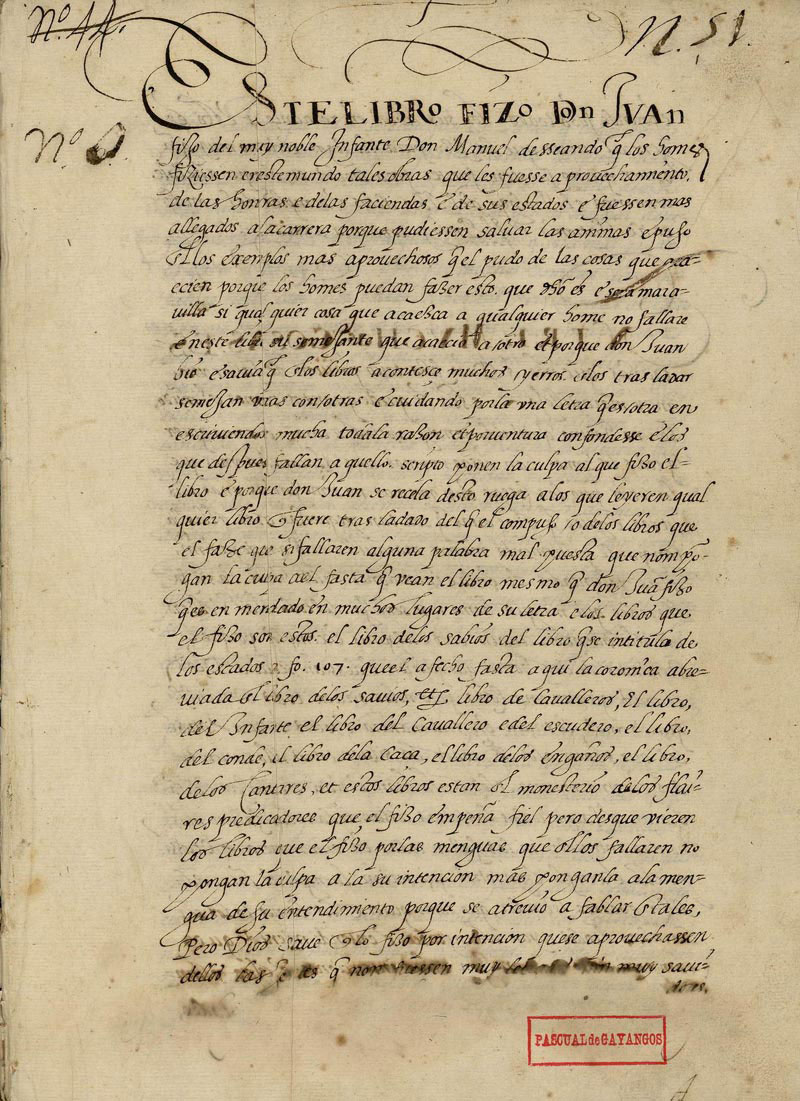 Nº 44.
N. 51.
ESTE LIBRO FIZO Don Iuan
Nº
fijo del muy noble Infante Don Manuel desseando q̃ los homes
fiziessen en este mundo tales obras que les fuesse aprouechamiento,
de las honras e de las faciendas, e de sus estados e fuessen mas
allegados a la carrera porque pudiessen saluar las animas e puso
los exemplos mas aprouechosos q̃ el pudo de las cosas que
ecien porque los homes puedan fazer esto. que dho es e sera mara-
uilla si qual quier cosa que acaesca a qualquier home no fallare
en este libº su semejante que acaecio a otro et porque don Iuan
bio e sauia q̃ los libros acontesce muchos yerros los trasladar
semejan vnas con otras e cuidando por la vna letra q̃ es otra en
escriuiendo mucha toda la razon et por uentura confondesse e los
que despues fallan aquello scripto ponen la culpa al que fizo el-
libro e porque don Iuan se recela desto ruega a los que leyeren qual
quier libro q̃ fuere trasladado del q̃ el compuso o de los libros que
el fizo que si fallaren alguna palabra mal puesta que non pon-
gan la culpa a el fasta q̃ vean el libro mesmo q̃ don Iuã fizo
q̃ es enmendado en muchos lugares de su letra e los libros que
el fizo son estos. el libro de los sabios del libro q̃ se intitula de
los estados fo. 107. que el a fecho fasta aqui la coronica abre-
uiada el libro de los sauios, et el libro de Caualleros, El libro,
del Infante el libro del Cauallero e del escudero, el libro,
del conde, el libro de la Caça, el libro de los engaños, el libro,
de los Cantares, et estos libros estan el monesterio de los flai-
res predicadores que el fizo em peña fiel pero desque vieren
los libros que el fizo por las menguas que ellos fallaren no
pongan la culpa a la su intencion mas ponganla a la men-
gua de su entendimiento porque se atreuio a fablar tales,
Pero Dios saue q̃ lo fizo por intencion que se aprouechassen
dellos las q̃ non fuessen muy muy saui-
dores.
PASCUAL de GAYANGOS